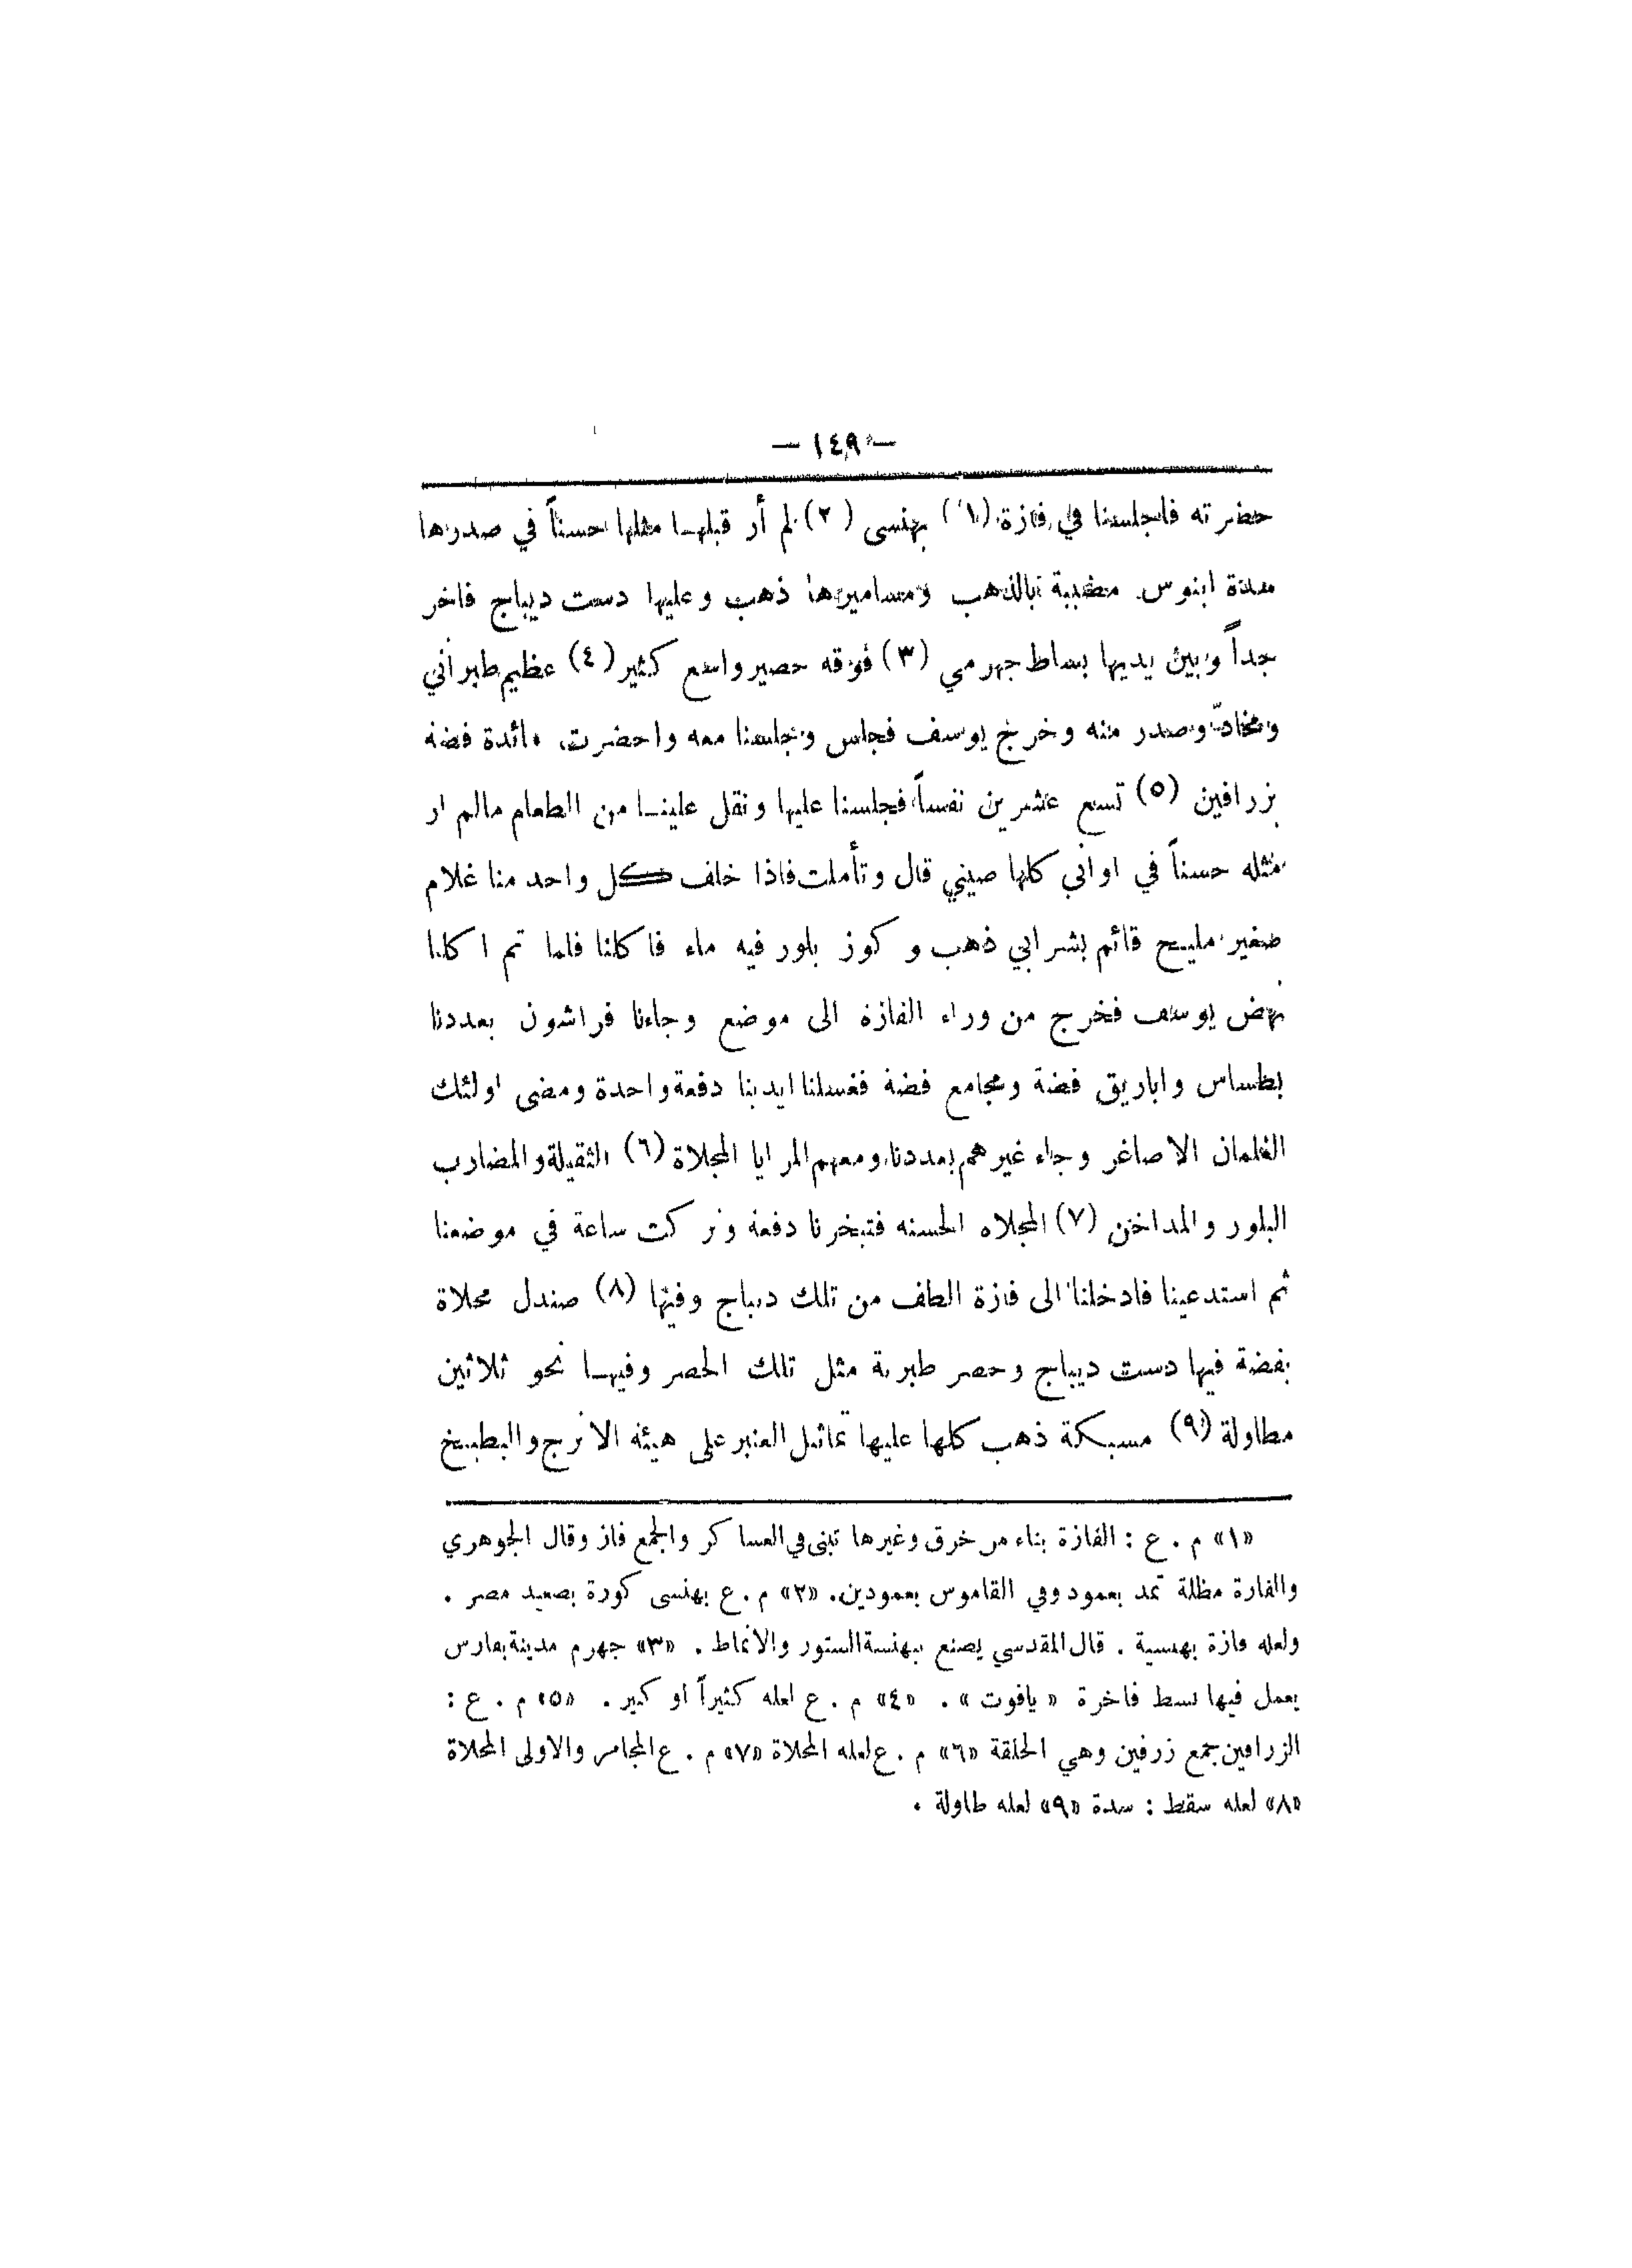 — ١٤٩ —
حضرته فاجلسنا في فازة (١) بهنسى (٢) لم أر قبلهـا مثلها حسناً في صدرها
سدة ابنوس مضببة بالذهب ومساميرها ذهب وعليها دست ديباج فاخر
جداً وبين يديها بساط جهرمي (٣) فوقه حصير واسع كثير (٤) عظيم طبراني
ومخادّ وصدر منه وخرج يوسف فجلس وجلسنا معه واحضرت مائدة فضة
بزرافين (٥) تسع عشرين نفساً فجلسنا عليها ونقل علينـا من الطعام مالم ار
مثله حسناً في اواني كلها صيني قال وتأملت فاذا خلف كل واحد منا غلام
صغير مليح قائم بشرابي ذهب وكوز بلور فيه ماء فاكلنا فلما تم اكلنا
نهض يوسف فخرج من وراء الفازة الى موضع وجاءنا فراشون بعددنا
بطساس واباريق فضة ومجامع فضة فغسلنا ايدينا دفعة واحدة ومضى اولئك
الغلمان الاصاغر وجاء غيرهم بعددنا ومعهم المرايا المجلاة (٦) الثقيلة والمضارب
البلور والمداخن (٧) المجلاه الحسنه فتبخرنا دفعة وتركت ساعة في موضعنا
ثم استدعينا فادخلنا الى فازة الطف من تلك ديباج وفيها (٨) صندل محلاة
بفضة فيها دست ديباج وحصر طبرية مثل تلك الحصر وفيهـا نحو ثلاثين
مطاولة (٩) مسبكة ذهب كلها عليها تماثيل العنبر على هيئة الاترج والبطيخ
«١» م . ع : الفازة بناء من خرق وغيرها تبنى في العساكر والجمع فاز وقال الجوهري
والفازة مظلة تمد بعمود وفي القاموس بعمودين. «٢» م . ع بهنسى كورة بصعيد مصر .
ولعله فازة بهنسية . قال المقدسي يصنع ببهنسة الستور والانماط . «٣» جهرم مدينة بفارس
يعمل فيها بسط فاخرة « ياقوت » . «٤» م . ع لعله كثيراً او كبير . «٥» م . ع :
الزرافين جمع زرفين وهي الحلقة «٦» م . ع لعله المحلاة «٧» م . ع المجامر والاولى المحلاة
«٨» لعله سقط : سدة «٩» لعله طاولة .